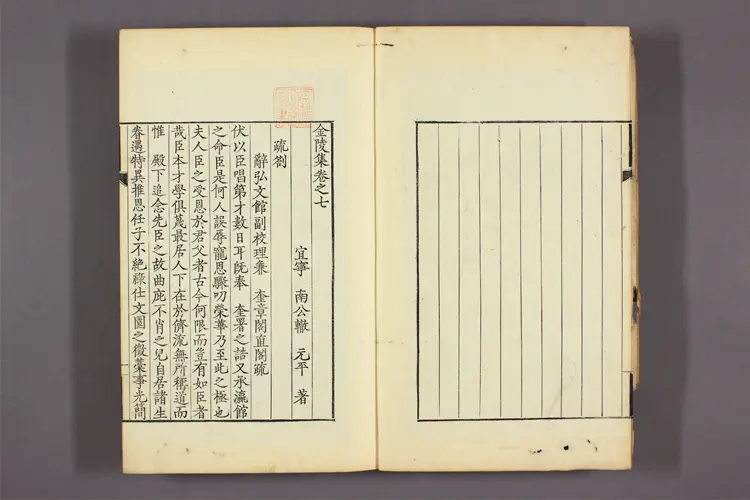 金陵集卷之七
宜寧 南公轍 元平 著
疏劄
辭弘文館副校理兼 奎章閣直閣疏
伏以臣唱第才數日耳旣奉 奎署之誥又承瀛館
之命臣是何人誤辱寵恩驟叨榮華乃至此之極也
夫人臣之受恩於君父者古今何限而豈有如臣者
哉臣本才學俱蔑最居人下在於儕流無所稱道而
惟 殿下追念先臣之故曲庇不肖之兒自居諸生
眷遇特異推恩任子不絶祿仕文園之微藁事光簡